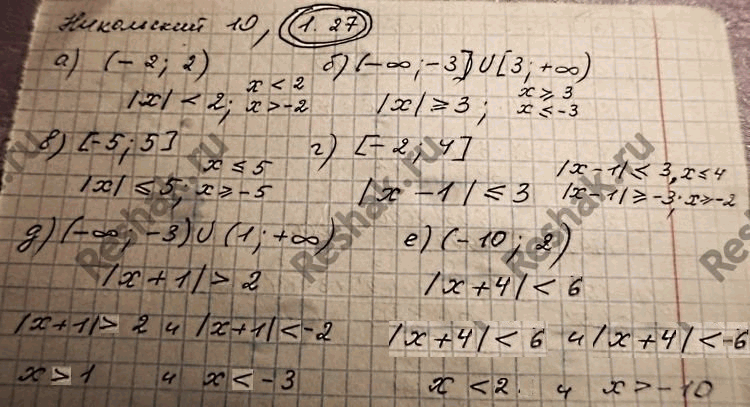 Никольский 10, 1.27
а) (-2; 2)
|x| < 2; x < 2
x > -2
б) (-∞; -3] ∪ [3; +∞)
|x| ≥ 3; x ≥ 3
x ≤ -3
в) [-5; 5]
|x| ≤ 5; x ≤ 5
x ≥ -5
г) [-2; 4]
|x - 1| ≤ 3
|x-1| < 3, x ≤ 4
|x-1| ≥ -3; x ≥ -2
д) (-∞; -3) ∪ (1; +∞)
|x + 1| > 2
|x+1| > 2 и |x+1| < -2
x > 1 и x < -3
е) (-10; 2)
|x+4| < 6
|x+4| < 6 и |x+4| < -6
x < 2 и x > -10
Reshak.ru
Reshak.ru
Reshak.ru
Reshak.ru